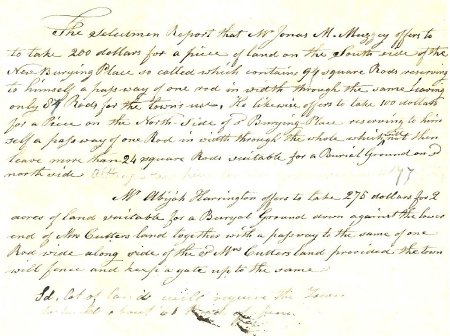 The Selectmen Report that Mr Jonas M. Muzzey offers to
to take 200 dollars for a piece of land on the South side of the
New Burying Place so called which contains 94 square Rods reserving
to himself a pass way of one rod in width through the same leaving
only 84 Rods for the town's use. He likewise offers to take 100 dollars
for a Piece on the North Side of sd Burying Place reserving to him
self a pass way of one Rod in width through the whole which will not then
leave more than 24 square Rods suitable for a Burial Ground on sd
north side
Mr Abijah Harrington offers to take 275 dollars for 2
acres of land suitable for a Buryal Ground down against the lower
end of Mrs Cutlers land together with a pass way to the same of one
Rod wide along side of the sd Mrs Cutlers land provided the town
will fence and keep a gate up to the same
Sd. lot of land will require the Town
to build about